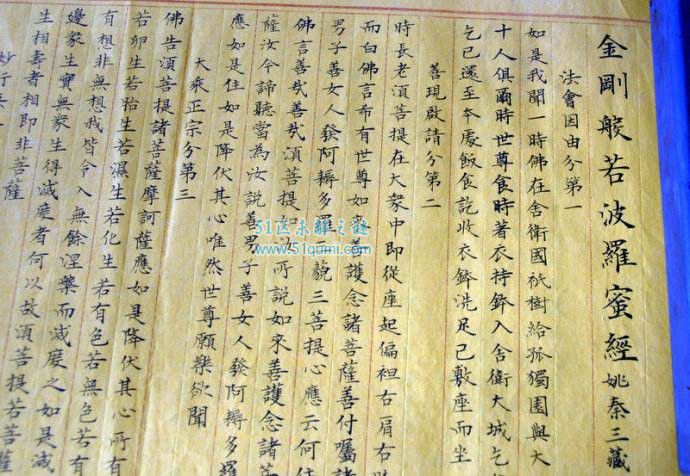 金剛般若波羅蜜經 姚秦三藏
法會因由分第一
如是我聞一時佛在舍衛國祇樹給孤獨園與大
十人俱爾時世尊食時著衣持鉢入舍衛大城乞
乞已還至本處飯食訖收衣鉢洗足已敷座而坐
善現啟請分第二
時長老須菩提在大眾中即從座起偏袒右肩右
而白佛言希有世尊如來善護念諸菩薩善付囑諸
男子善女人發阿耨多羅 藐三菩提心應云何住
佛言善哉善哉須菩提如汝所說如來善護念諸
薩汝今諦聽當為汝說善男子善女人發阿耨多羅
應如是住如是降伏其心唯然世尊願樂欲聞
大乘正宗分第三
佛告須菩提諸菩薩摩訶薩應如是降伏其心所有
若卵生若胎生若濕生若化生若有色若無色若有
有想非無想我皆令入無餘涅槃而滅度之如是滅
邊眾生實無眾生得滅度者何以故須菩提若菩薩
生相壽者相即非菩薩
妙行
51区未解之谜
www.51qumi.com